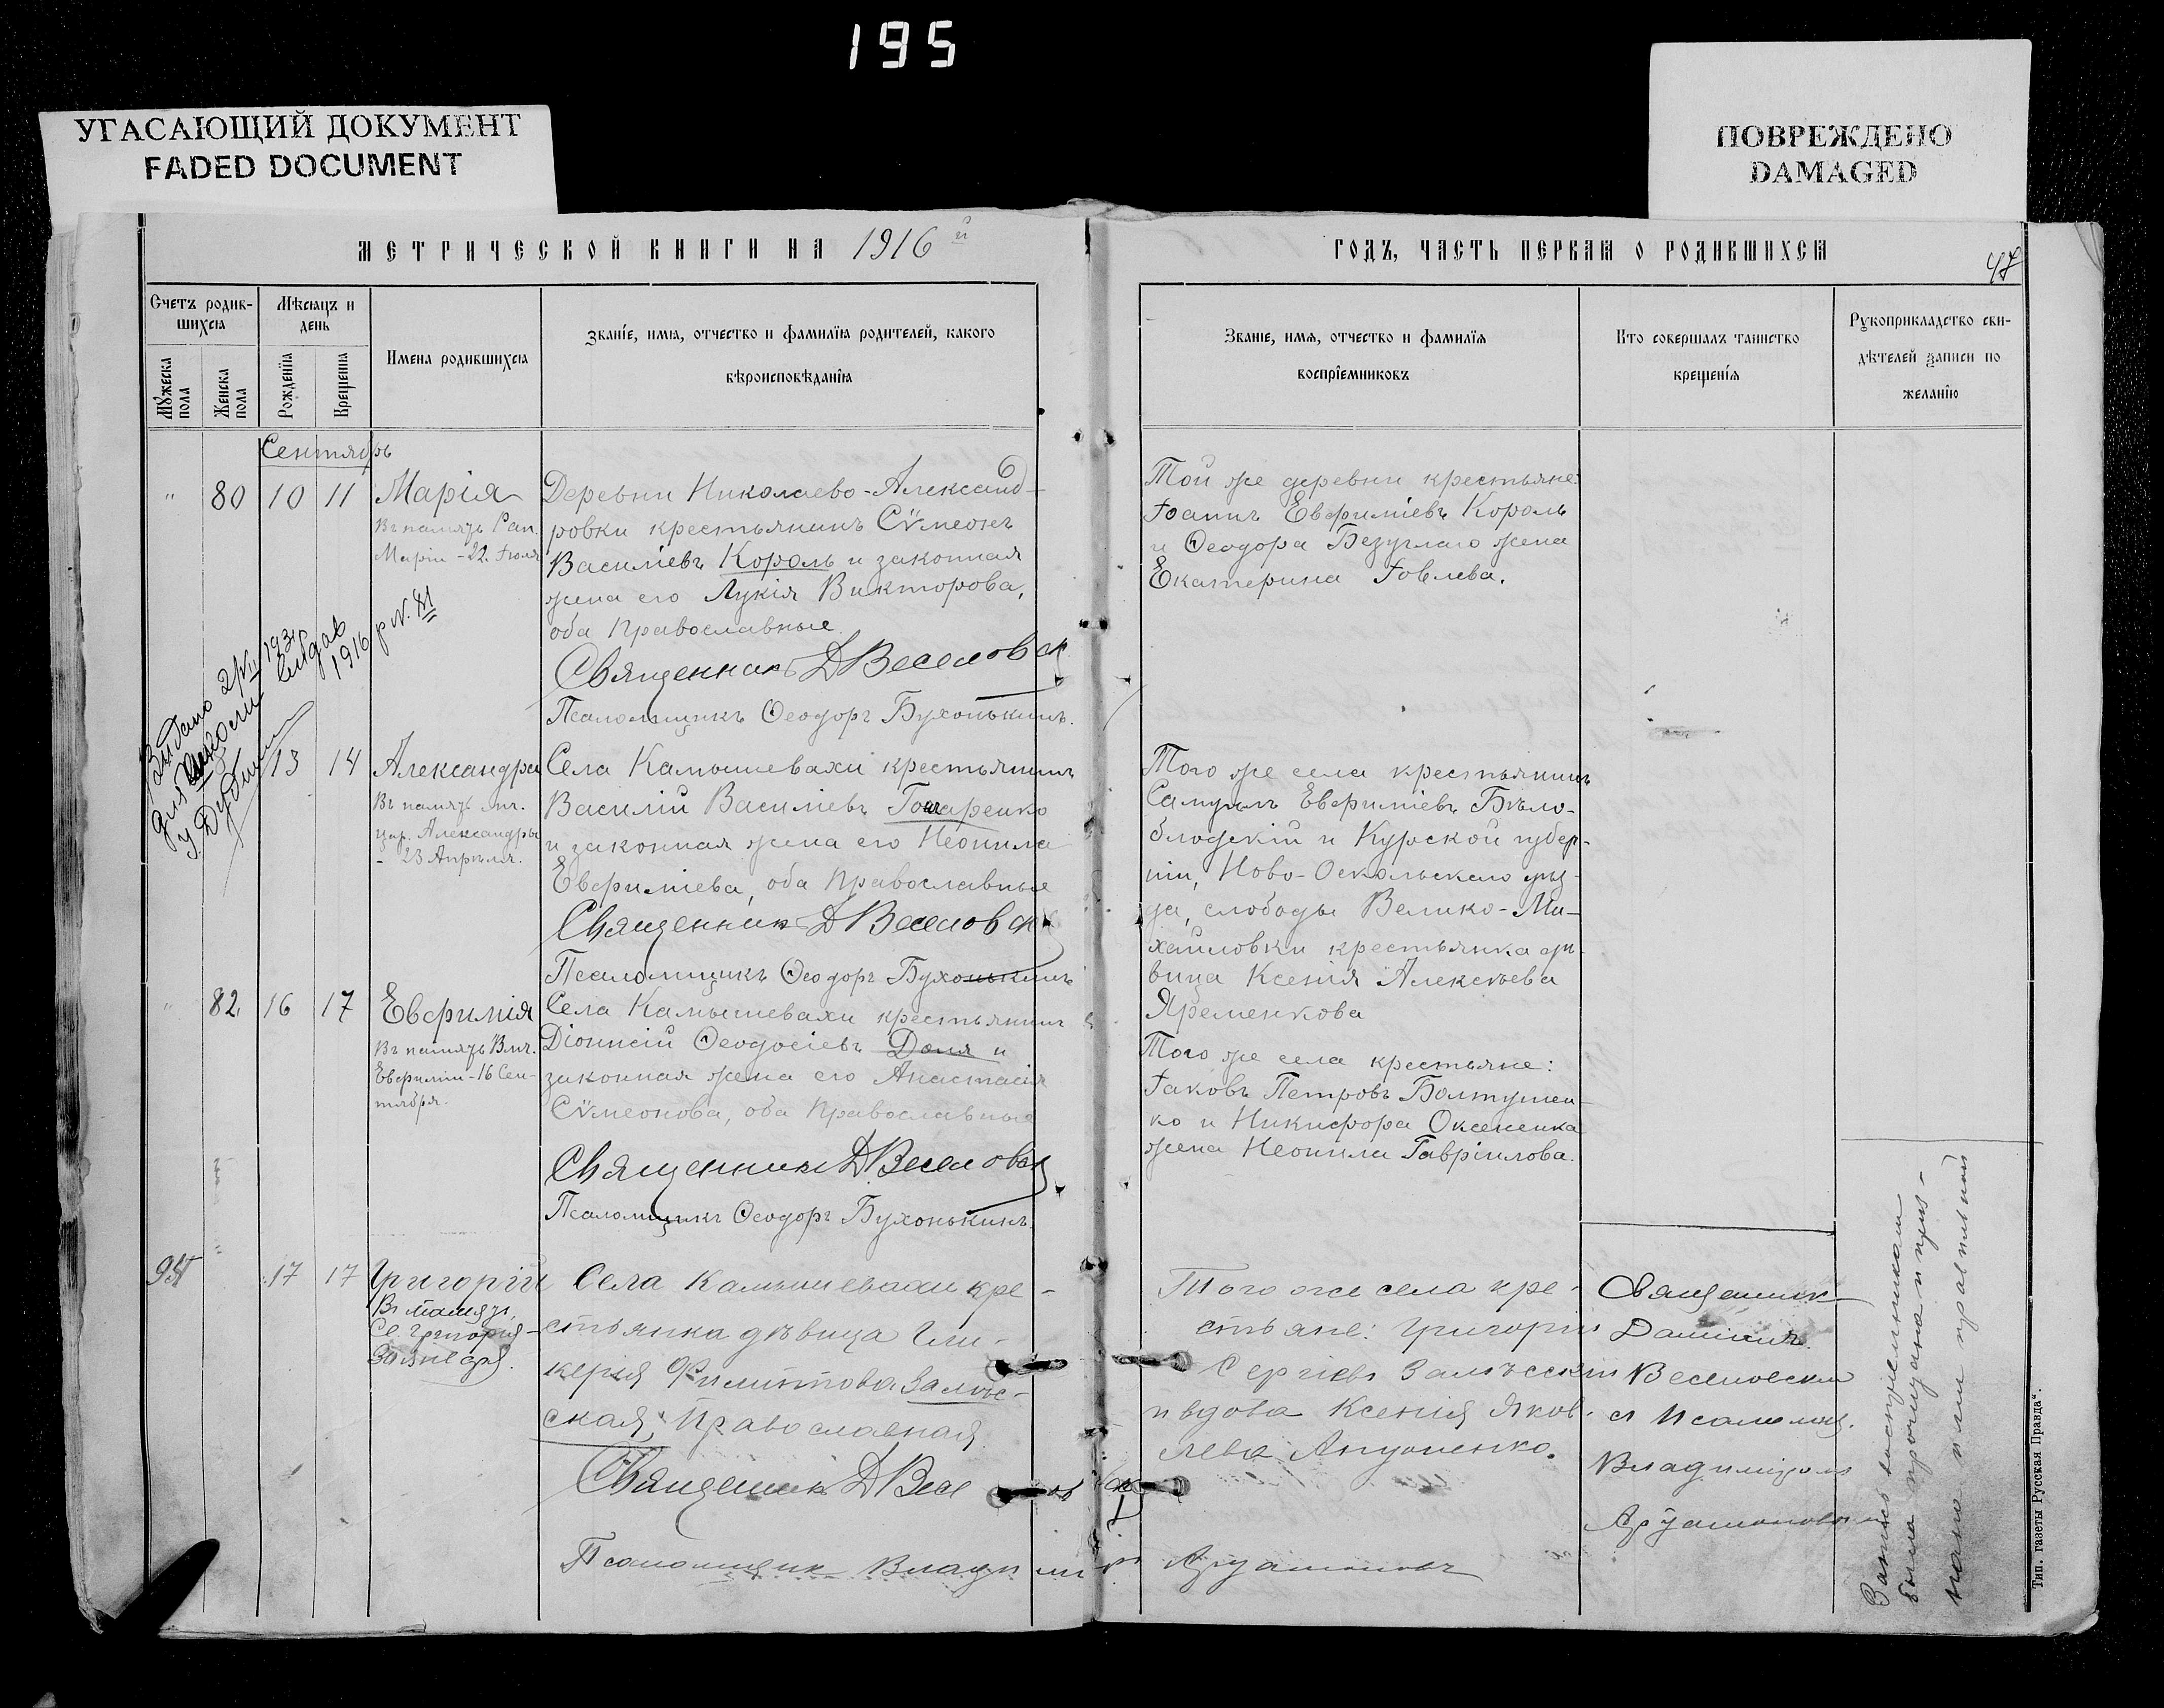 195
УГАСАЮЩИЙ ДОКУМЕНТ
FADED DOCUMENT
ПОВРЕЖДЕНО
DAMAGED
МЕТРИЧЕСКОЙ КНИГИ НА 1916 й
Счетъ родив-
шихся
Мѣсяцъ и
день
Мужеска
пола
Женска
пола
Рожденія
Крещенія
Имена родившихся
Званіе, имя, отчество и фамилія родителей, какого
вѣроисповѣданія
Сентябрь
" 80 10 11 Марія
Въ память Рап.
Маріи - 22 Іюля
Деревни Николаево-Александ-
ровки крестьянинъ Сѵмеонъ
Василіевъ Король и законная
жена его Лукія Викторова,
оба Православные.
Священникъ Д Веселовск
Псаломщикъ Ѳеодоръ Бухонькинъ.
Видано 1931
для
у Дубини
1916 р N. 81
13 14 Александра
Въ память мч.
цар. Александры
- 23 Апрѣля.
Села Камышевахи крестьянинъ
Василій Василіевъ Гончаренко
и законная жена его Неонила
Евфиміева, оба Православные
Священникъ Д Веселовск
Псаломщикъ Ѳеодоръ Бухонькинъ
" 82 16 17 Евфимія
Въ память Вмч.
Евфиміи - 16 Сен-
тября.
Села Камышевахи крестьянинъ
Діонисій Ѳеодосіевъ Доля и
законная жена его Анастасія
Сѵмеонова, оба Православные
Священникъ Д. Веселовск
Псаломщикъ Ѳеодоръ Бухонькинъ.
17 17 Григорій
Въ память
Св Григорія -
30 января.
Села Камышевахи кре-
стьянка дѣвица Гли-
керія Филиппова Залѣс-
ская, Православная
Священникъ Д Веселовск
Псаломщикъ Владиміръ Артамоновъ
ГОДЪ, ЧАСТЬ ПЕРВАЯ О РОДИВШИХСЯ
47
Званіе, имя, отчество и фамилія
воспріемниковъ
Кто совершалъ таинство
крещенія
Рукоприкладство сви-
дѣтелей записи по
желанію
Той же деревни крестьяне:
Іоаннъ Евфиміевъ Король
и Ѳеодора Безуглаго жена
Екатерина Іовлева.
Того же села крестьянинъ
Самуилъ Евфиміевъ Бѣло-
блодскій и Курской губер-
ніи, Ново-Оскольскаго уѣз-
да, слободы Велико-Ми-
хайловки крестьянка дѣ-
вица Ксенія Алексѣева
Яременкова
Того же села крестьяне:
Іаковъ Петровъ Болтушен-
ко и Никифора Оксененка
жена Неонила Гавріилова.
Того же села кре-
стьяне: Григорій
Сергіевъ Залѣсскій
и вдова Ксенія Яков-
лева
Священникъ
Даніилъ
Веселовскій
съ Псаломщ.
Владиміромъ
Артамоновымъ
Запись воспріемниками
была
или правильной
Тип. газеты Русская Правда".